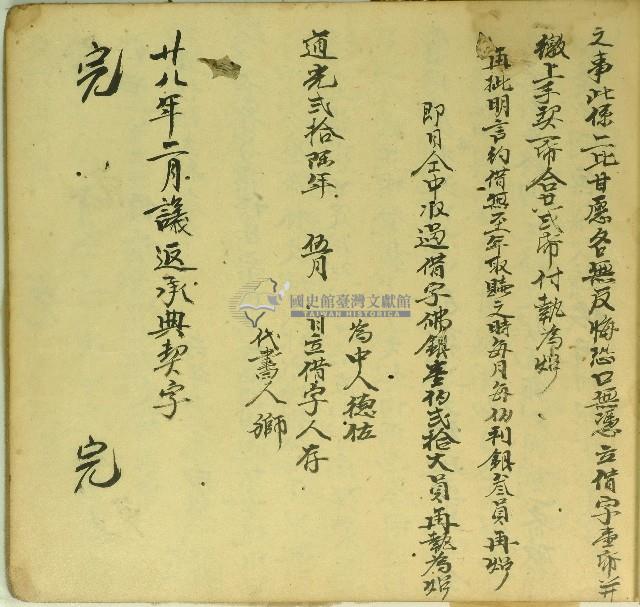 之事此係二比甘愿各無反悔恐口無憑立借字壹帋并
繳上手契一帋合共弍帋付執為炤
再批明言約借無至年取贖之時每月每佰利銀叁員再炤
即日仝中收過借字佛銀壹佰弍拾大員再執為炤
為中人德伍
道光弍拾陆年 伍月 日立借字人存
代書人獅
廿八年二月議返承典契字
完 完
國史館臺灣文獻館
TAIWAN HISTORICA